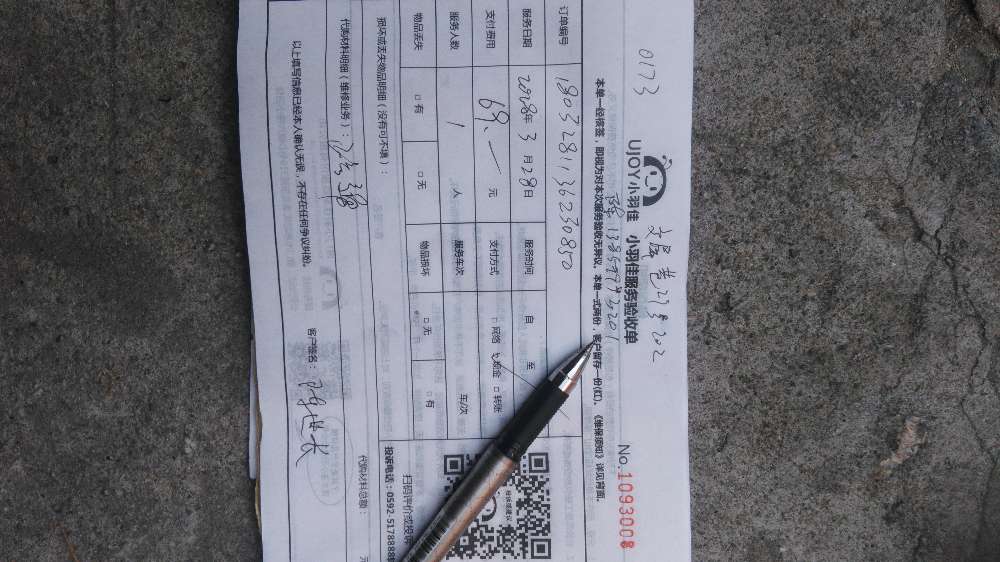 0173
UJOY小羽佳 小羽佳服务验收单
No.1093008
本单一经核签，即视为对本次服务验收无异议。本单一式两份，客户留存一份(红)。《维保须知》详见背面。
订单编号 1803281136230850
服务日期 2028年3月28日 服务时间 自 至
支付费用 69.一元 支付方式 □网络 现金 □转账
服务人数 1人 服务车次 车/次
物品丢失 □有 □无 物品损坏 □无 □有
损坏或丢失物品明细（没有可不填）：
扫码评价或投诉
投诉电话：0592-5178888
代购材料明细（维修业务）：
代购材料总额： 元
以上填写信息已经本人确认无误，不存在任何争议纠纷。 客户签名：